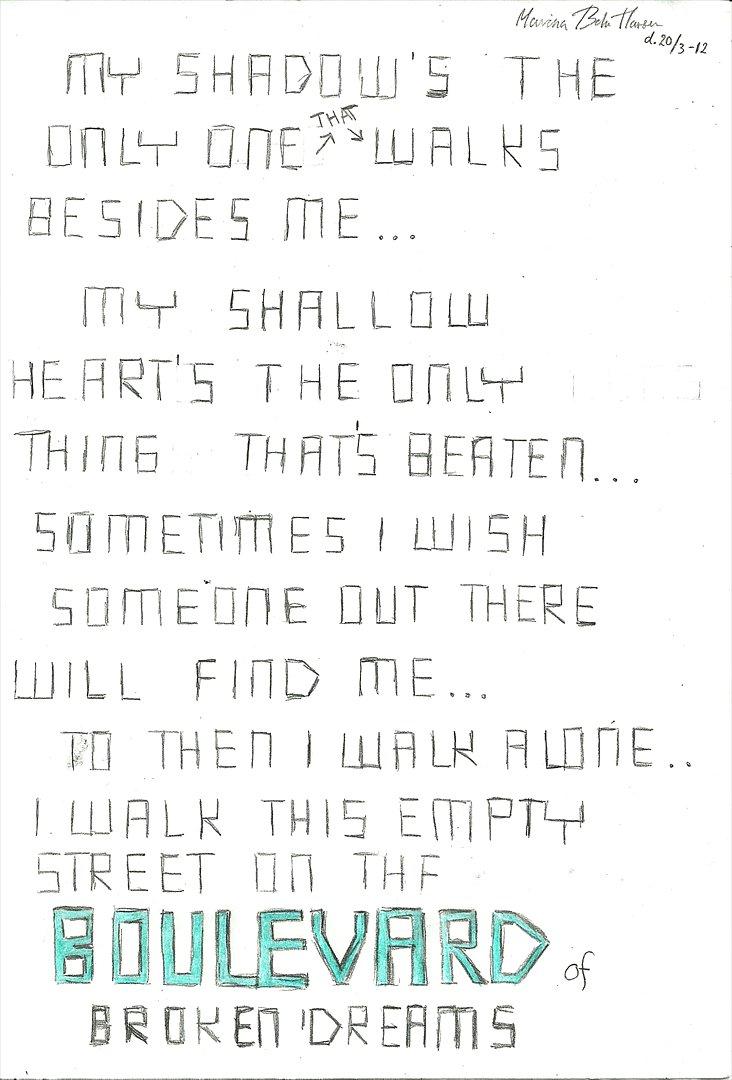 d. 20/3-12
MY SHADOW'S THE
ONLY ONE THAT WALKS
BESIDES ME...
MY SHALLOW
HEART'S THE ONLY
THING THAT'S BEATEN...
SOMETIMES I WISH
SOMEONE OUT THERE
WILL FIND ME...
TO THEN I WALK ALONE..
I WALK THIS EMPTY
STREET ON THE
BOULEVARD of
BROKEN DREAMS